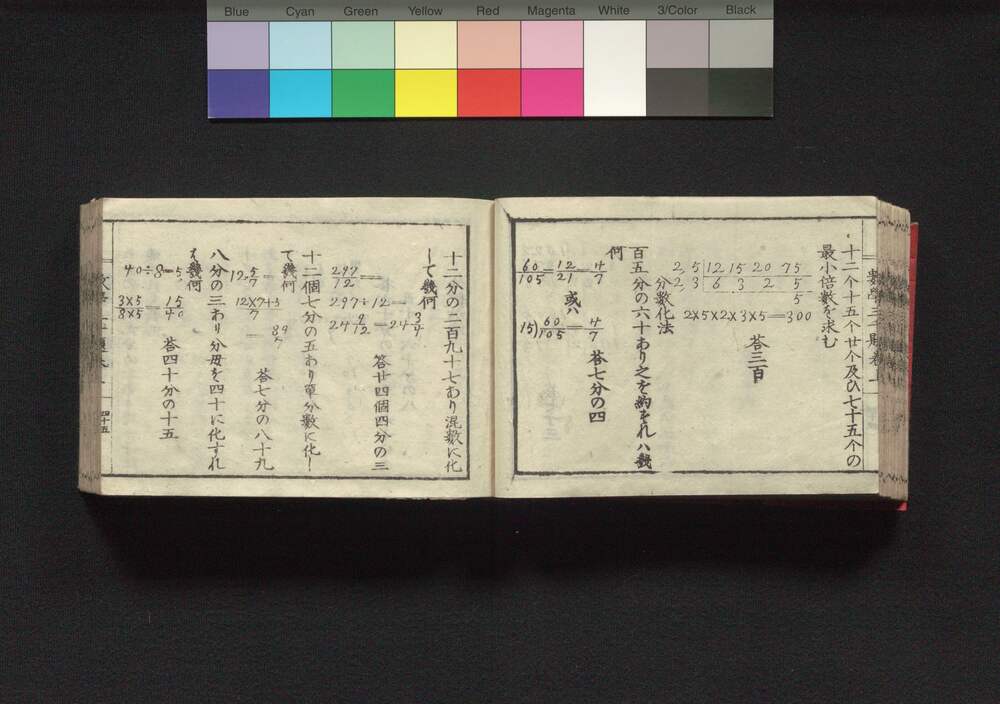 Blue Cyan Green Yellow Red Magenta White 3/Color Black
十二个十五个廿个及ひ七十五个の
最小倍数を求む
2,5 12 15 20 75
2,3 6 3 2 5
5
2×5×2×3×5=300
答三百
分数化法
百五分の六十あり之を約をれハ幾
何
60/105=12/21=4/7
或ハ
15)60/105=4/7
答七分の四
十二分の二百九十七あり混数に化
して幾何
297/12=
297÷12=
24 9/12=24 3/4
答廿四個四分の三
十二個七分の五あり単分数に化し
て幾何
12,5/7
12×7+5/7
=89/7
答七分の八十九
八分の三あり分母を四十に化すれ
は幾何
40÷8=5,
3×5/8×5=15/40
答四十分の十五
四十五